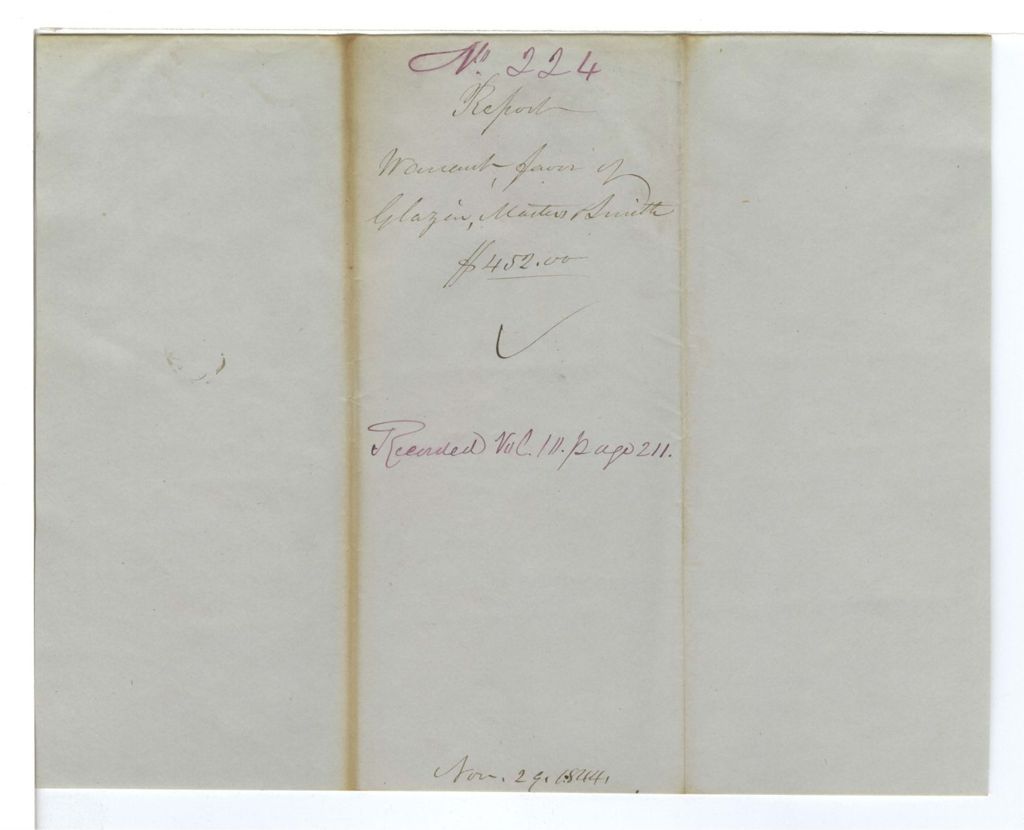 No. 224
Report
Warrant, favor of
Glazin, Masters & Smith
$452.00
Recorded Vol. 10. page 211.
Nov. 29. 1844.